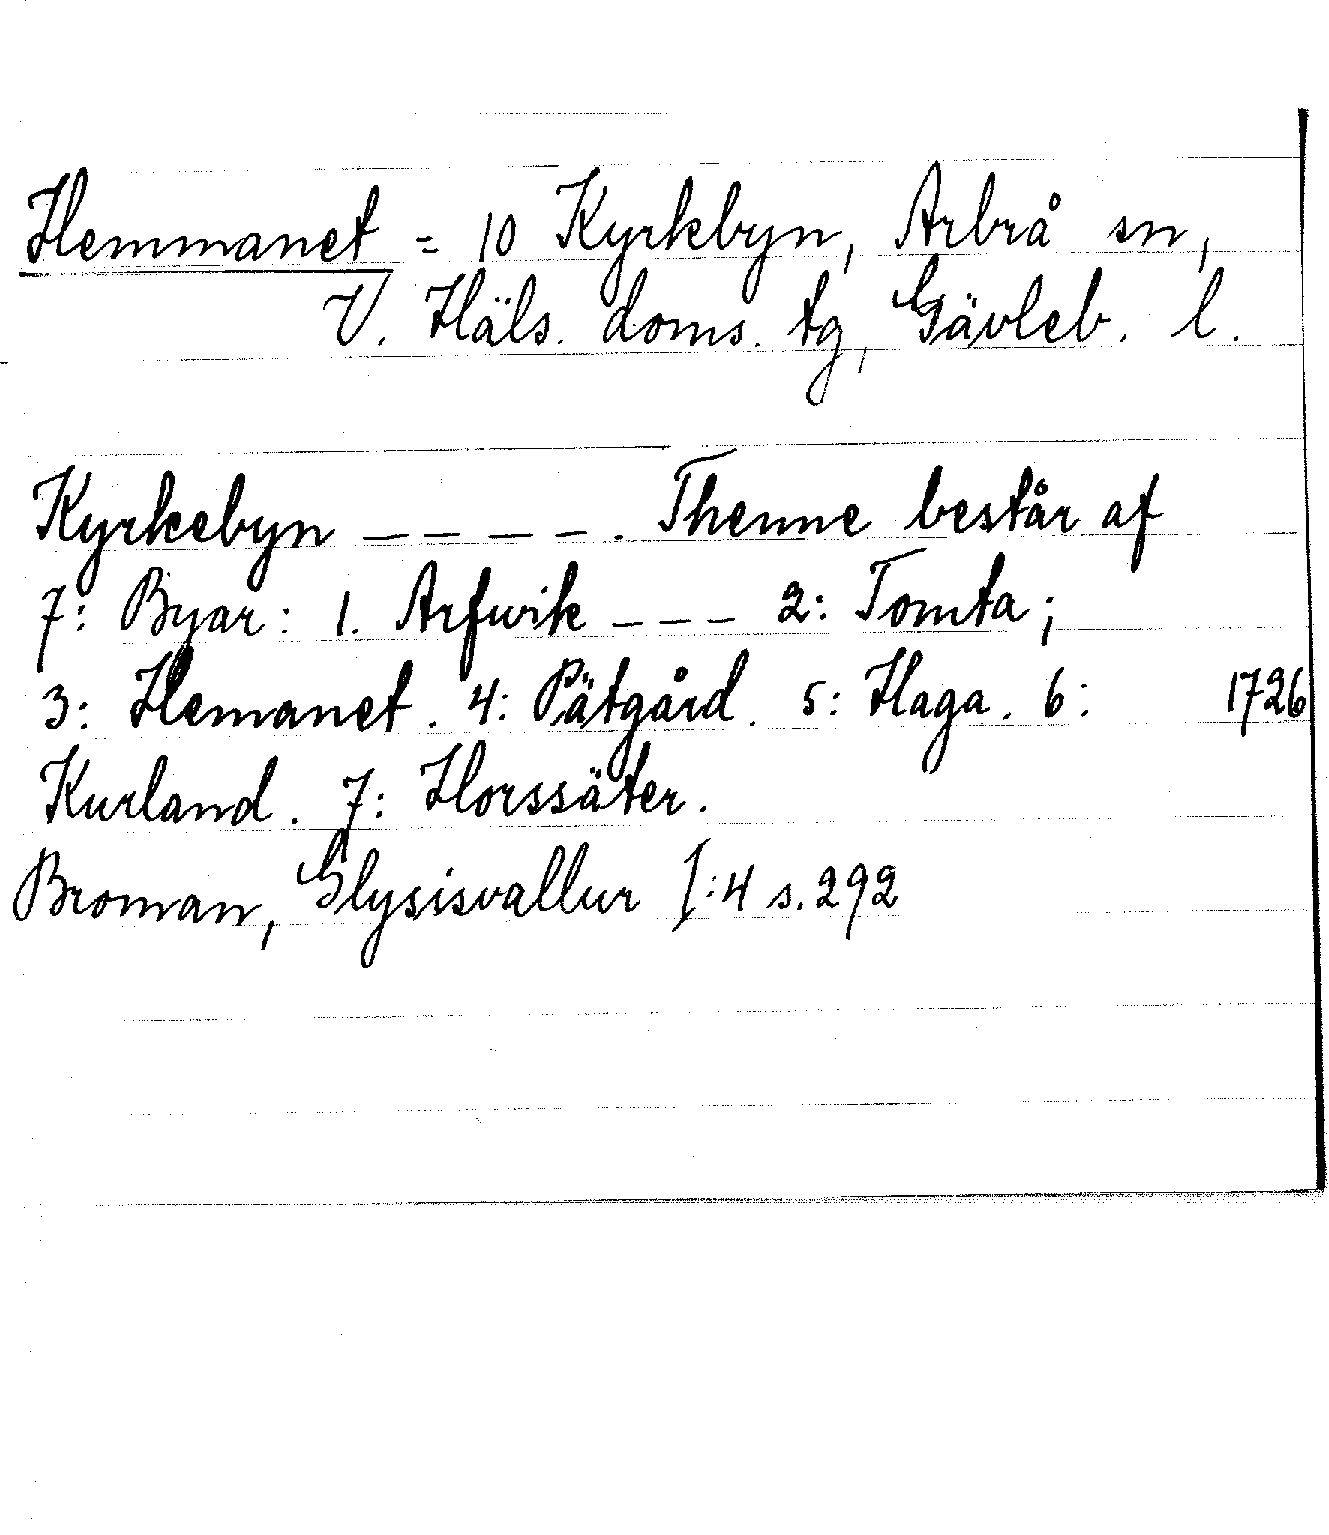 Hemmanet = 10 Kyrkebyn, Arbrå sn,
V. Häls. doms. tg, Gävleb. l.
Kyrkebyn _ _ _ _ _ . Thenne består af
7: Byar: 1. Arfwik _ _ _ 2: Tomta;
3: Hemanet. 4: Pätgård. 5: Haga. 6: 1726
Kurland. 7: Horssäter.
Broman, Glysisvallur I:4 s. 292